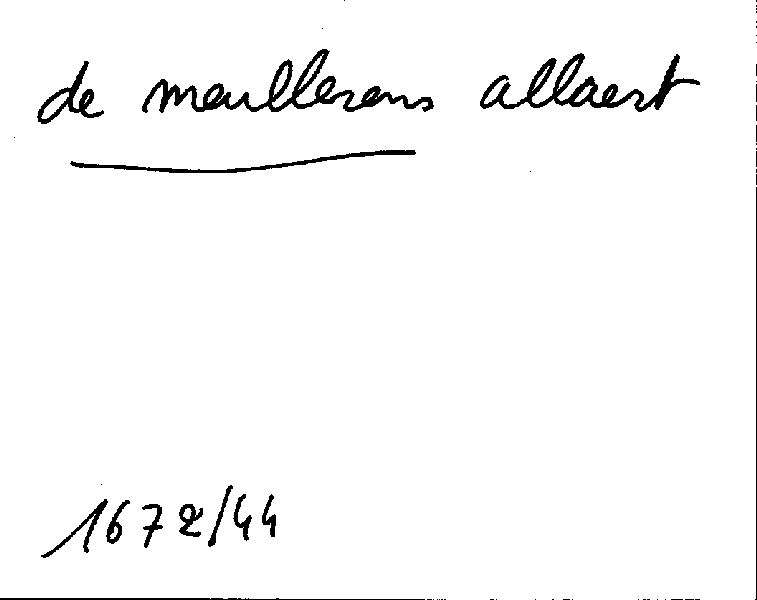 de meulleseans allaert
1672/44